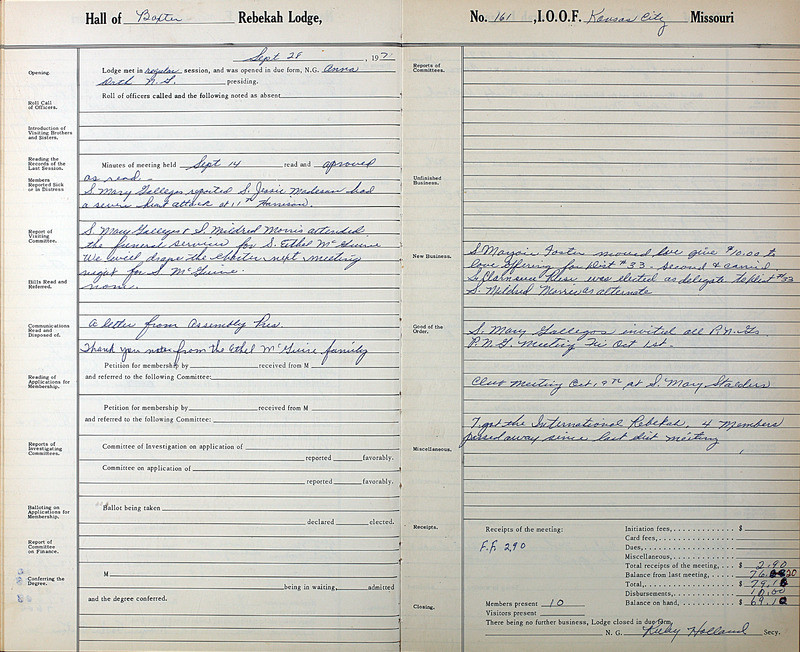 Hall of Baxter Rebekah Lodge,
Sept 28, 197
Opening.
Lodge met in regular session, and was opened in due form, N.G. Anna
N.G. presiding.
Roll Call of Officers.
Roll of officers called and the following noted as absent
Introduction of Visiting Brothers and Sisters.
Reading the Records of the Last Session.
Minutes of meeting held Sept 14 read and aproved
as read.
Members Reported Sick or in Distress
S. Mary Gallegos reported S. Jessie Madesan had
a severe heart attack at 11th Harrison.
Report of Visiting Committee.
S. Mary Gallegos & S. Mildred Morris attended
the funeral services for S. Ethel McGuire
We will drape the charter next meeting
night for S. McGuire.
Bills Read and Referred.
none.
Communications Read and Disposed of.
A letter from Assembly Pres.
Thank you notes from the Ethel McGuire family
Petition for membership by received from M
Reading of Applications for Membership.
and referred to the following Committee:
Petition for membership by received from M
and referred to the following Committee:
Reports of Investigating Committees.
Committee of Investigation on application of
reported favorably.
Committee on application of
reported favorably.
Balloting on Applications for Membership.
Ballot being taken
declared elected.
Report of Committee on Finance.
Conferring the Degree.
M
being in waiting, admitted
and the degree conferred.
No. 161, I.O.O.F. Kansas City Missouri
Reports of Committees.
Unfinished Business.
New Business.
S Marjorie Foster moved we give $10.00 to
love offering for Dist #33. Second & carried
S. was elected as delegate to Dist #33
S. Mildred Morris as alternate
Good of the Order.
S. Mary Gallegos invited all P.N.Gs
P.N.G. Meeting Fri Oct 1st.
Club meeting Oct, at S. Mary Stalders
I got the International Rebekah. 4 Members
passed away since last dist meeting
Miscellaneous.
Receipts.
Receipts of the meeting:
F.F. 2.90
Initiation fees, $
Card fees,
Dues,
Miscellaneous,
Total receipts of the meeting, $ 2.90
Balance from last meeting, 76.20
Total, $ 79.10
Disbursements, 10.00
Balance on hand, $ 69.10
Members present 10
Visitors present
Closing.
There being no further business, Lodge closed in due form,
N. G. Ruby Holland Secy.